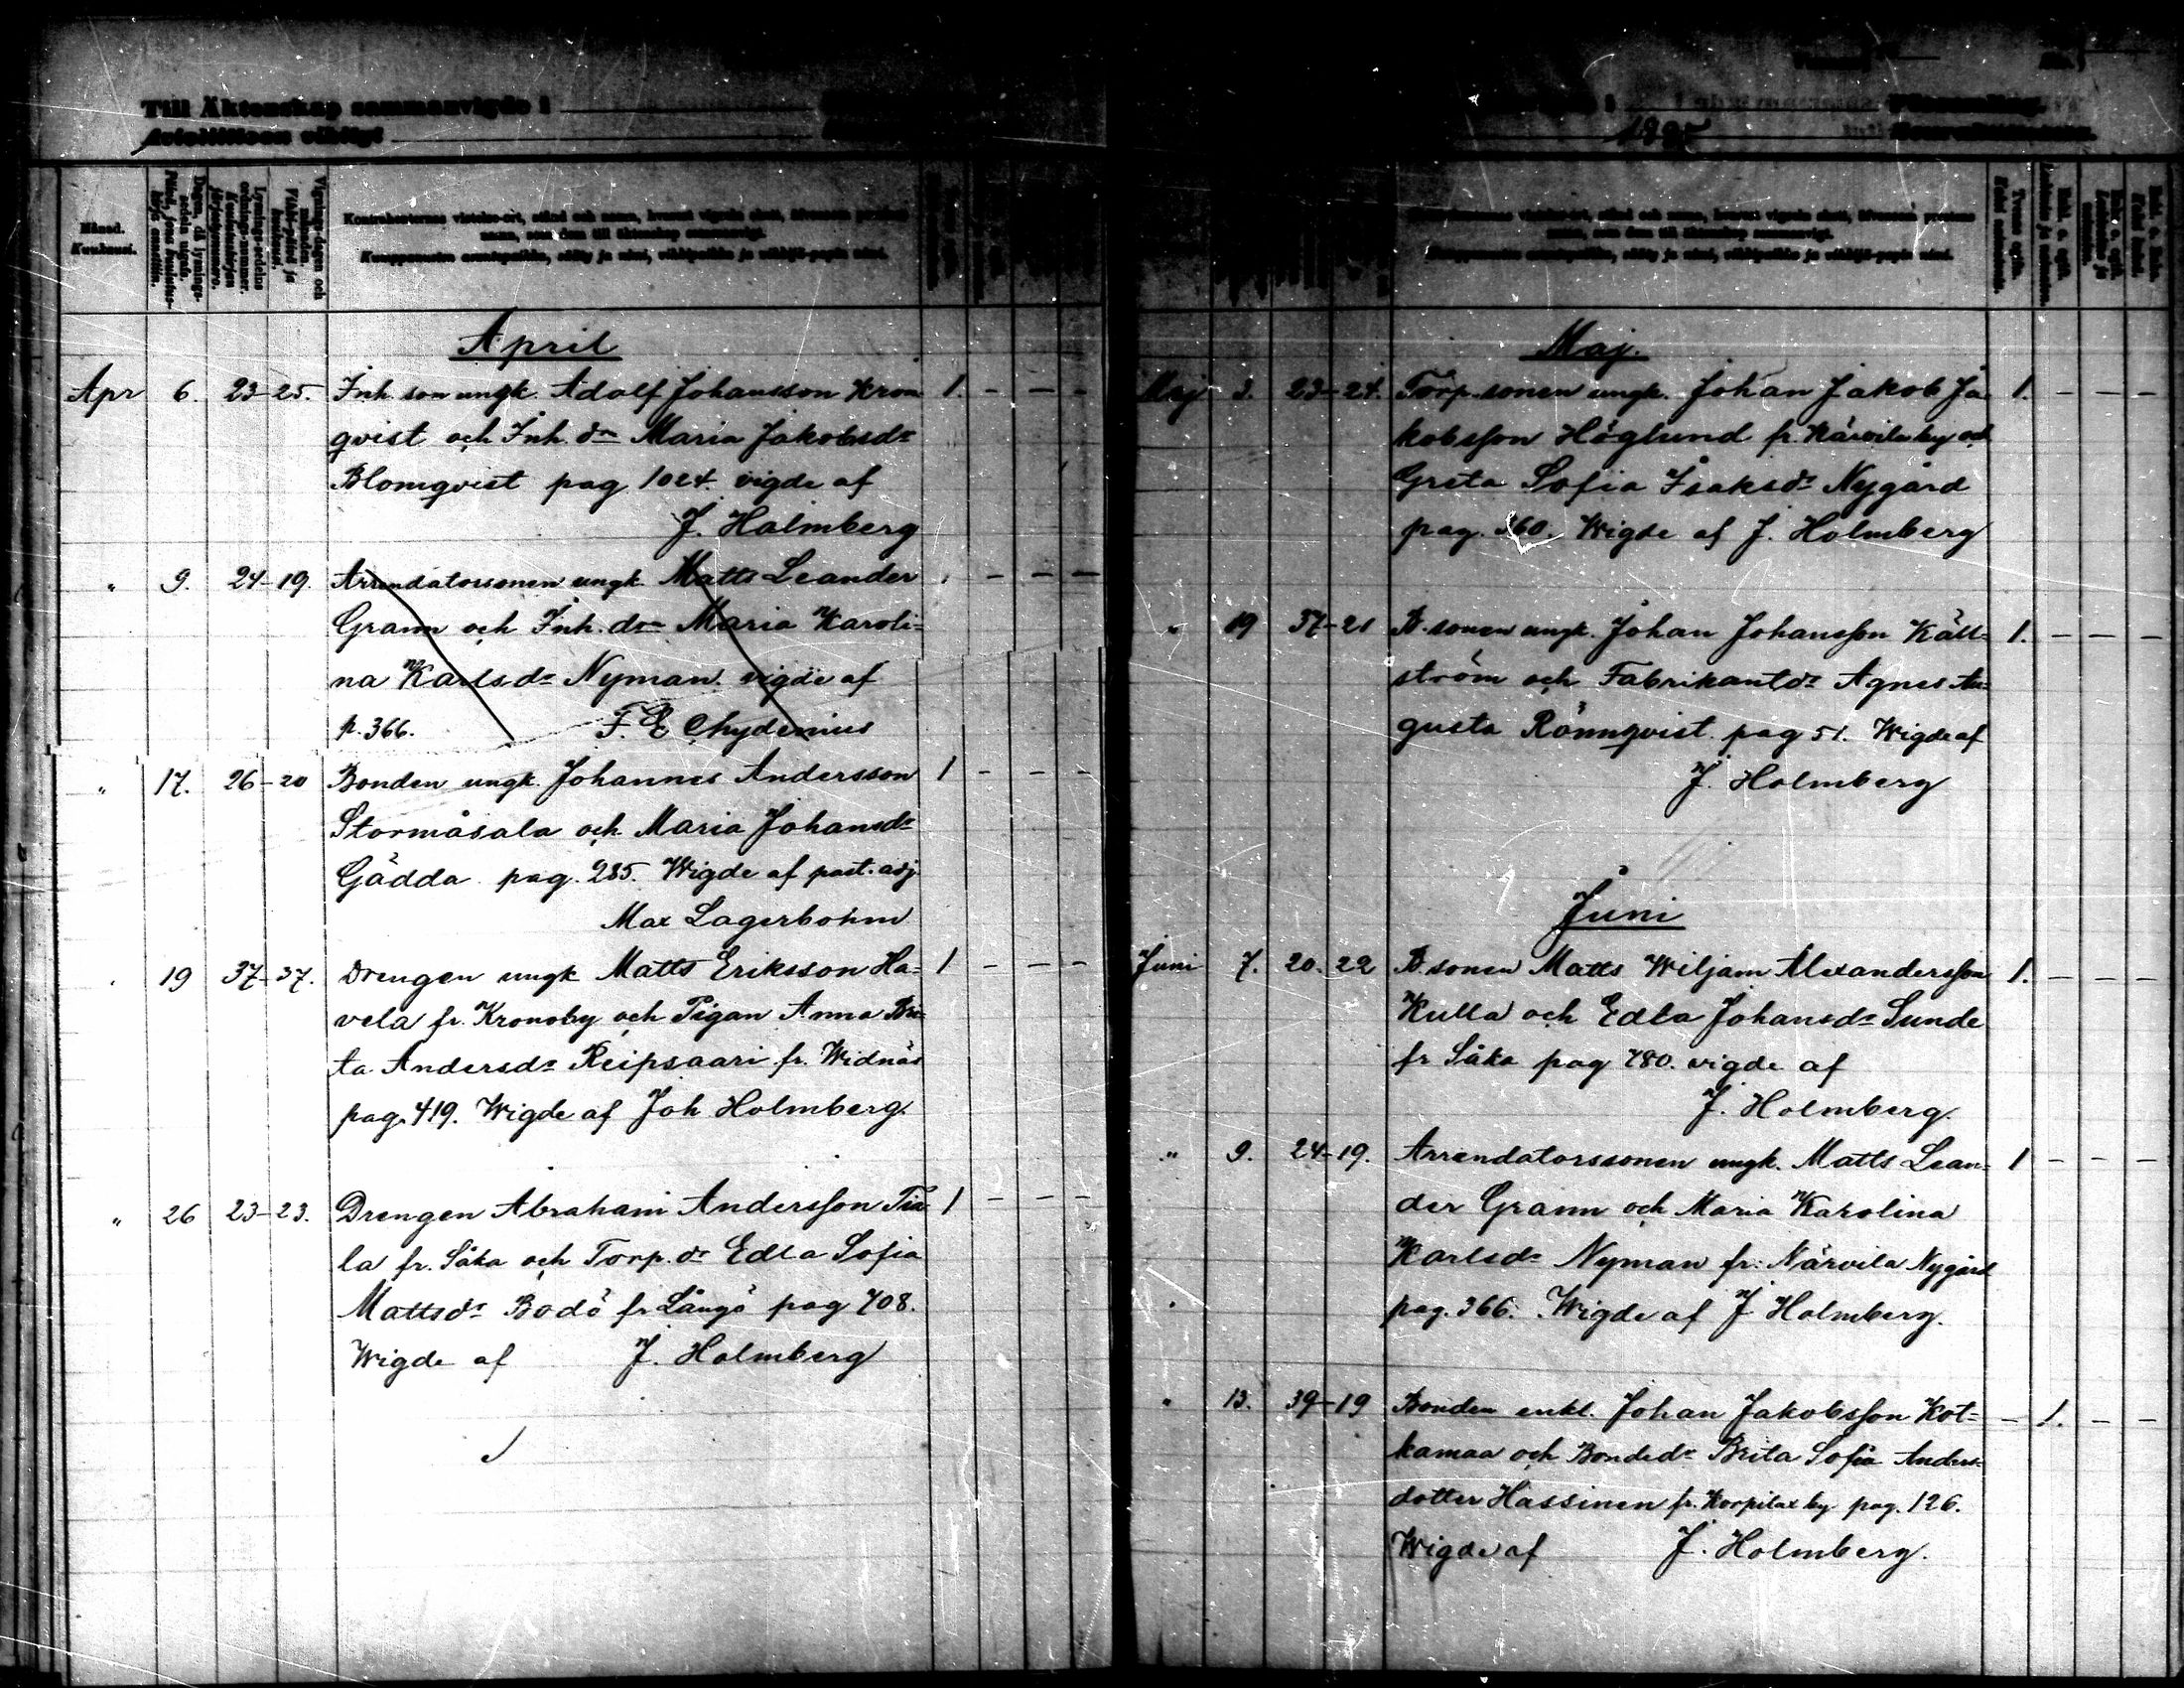 Till Äktenskap sammanvigde i
Avioliittoon vihityt
Månad.
Kuukausi.
Kontrahenternas vistelse-ort, stånd och namn, hvarest vigseln skett, äfvensom prestens
namn, som dem till äktenskap sammanvigt.
April
Apr 6. 23-25. Inh. son ungk. Adolf Johansson Kron
qvist och Inh. dr Maria Jakobsdr
Blomqvist pag 1024. vigde af
J. Holmberg
" 9. 24-19. Arrendatorssonen ungk. Matts Leander
Grann och Inh. dr Maria Karoli-
na Karlsdr Nyman. vigde af
p. 366. F. E Chydenius
" 17. 26-20 Bonden ungk. Johannes Andersson
Stormåsala och Maria Johansdr
Gädda pag. 285. Wigde af past. adj.
Max Lagerbohm
19 37-37. Drengen ungk Matts Eriksson Ha-
vela fr. Kronoby och Pigan Anna Bri-
ta Andersdr Reipsaari fr. Widnäs
pag. 419. Wigde af Joh Holmberg.
" 26 23-23. Drengen Abraham Andersson
la fr. Såka och Torp. dr Edla Sofia
Mattsdr Bodö fr Långö pag 708.
Wigde af J. Holmberg
1895
Maj.
Maj 3. 23-24. Torp. sonen ungk. Johan Jakob Ja-
kobsson Höglund fr. by och
Greta Sofia Isaksdr Nygård
pag. 360. Wigde af J. Holmberg
" 19 37-21 B. sonen ungk. Johan Johansson Käll-
ström och Fabrikantdr Agnes Au-
gusta Rönnqvist. pag 51. Wigde af
J. Holmberg
Juni
Juni 7. 20-22 B. sonen Matts Wiljam Alexandersson
Kulla och Edla Johansdr Sunde
fr Såka pag 780. vigde af
J. Holmberg.
" 9. 24-19. Arrendatorssonen ungk. Matts Lean-
der Grann och Maria Karolina
Karlsdr Nyman fr. Närvila Nygård
pag. 366. Wigde af J Holmberg.
" 13. 39-19 Bonden enkl. Johan Jakobsson Kot-
kamaa och Bondedr Brita Sofia Anders-
dotter Hassinen fr. Korpilax by pag. 126.
Wigde af J. Holmberg.